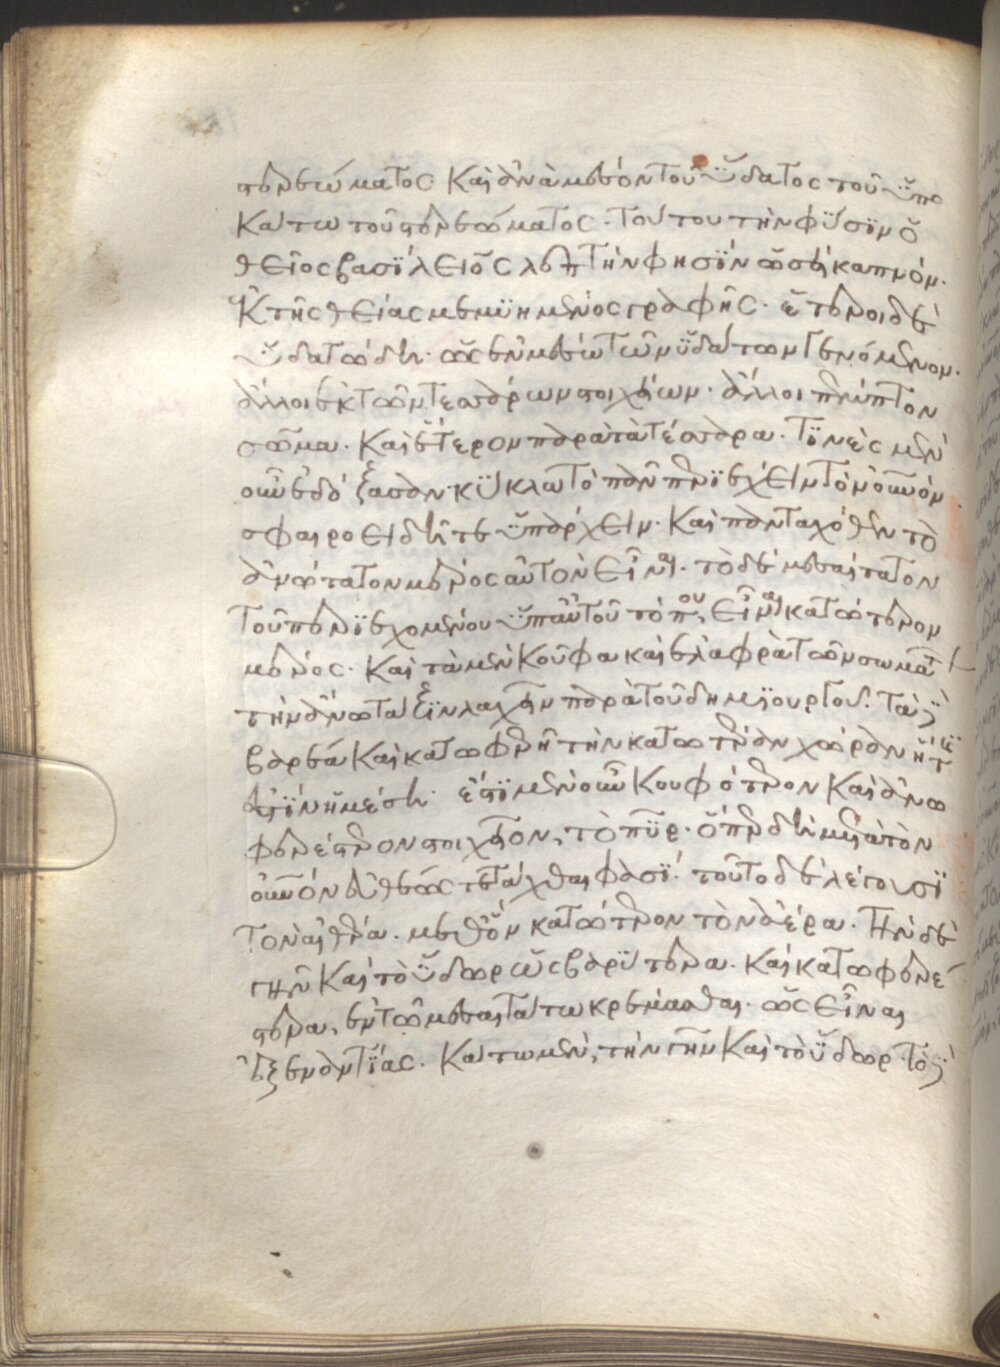 στερεώματος· καὶ ἀνὰ μέσον τοῦ ὕδατος τοῦ ὑπο
κάτω τοῦ στερεώματος. τούτου τὴν φύσιν ὁ
θεῖος βασίλειος λεπτήν φησιν ὡσεὶ καπνόν.
ἐκ τῆς θείας μεμυημένος γραφῆς. ἕτεροι δὲ
ὑδατώδη. ὡς ἐν μέσω τῶν ὑδάτων γενόμενον.
ἄλλοι ἐκ τῶν τεσσάρων στοιχείων. ἄλλοι πέμπτον
σῶμα. καὶ ἕτερον παρὰ τὰ τέσσαρα. τινὲς μὲν
οὖν ἐδόξασαν κύκλω τὸ πᾶν περιέχειν τὸν οὐνόν
σφαιροειδῆ τε ὑπάρχειν. καὶ πανταχόθεν τὸ
ἀνώτατον μέρος αὐτὸν εἶναι. τὸ δὲ μεσαίτατον
τοῦ περιεχομένου ὑπ αὐτοῦ τόπου, εἶναι κατώτερον
μέρος. καὶ τὰ μὲν κοῦφα καὶ ἐλαφρὰ τῶν σωμάτ
τὴν ἄνω τάξιν λαχεῖν παρὰ τοῦ δημιουργοῦ. τὰ δὲ
βαρέα καὶ κατωφερῆ τὴν κατωτέραν χώραν ἥτις
ἐστὶν ἡ μέση. ἔστι μὲν οὖν κουφότερον καὶ ἀνω
φερέστερον στοιχεῖον, τὸ πῦρ. ὅπερ δὴ μετὰ τὸν
οὐνὸν εὐθέως τετάχθαι φασί. τοῦτο δὲ λέγουσι
τὸν αἰθέρα. μεθ ὃν κατώτερον τὸν ἀέρα. τὴν δὲ
γῆν καὶ τὸ ὕδωρ ὡς βαρύτερα. καὶ κατωφερέ
στερα, ἐν τῶ μεσαιτάτω κρέμασθαι. ὡς εἶναι
ἐξ ἐναντίας. κάτω μὲν, τὴν γῆν καὶ τὸ ὕδωρ. τὸ δὲ